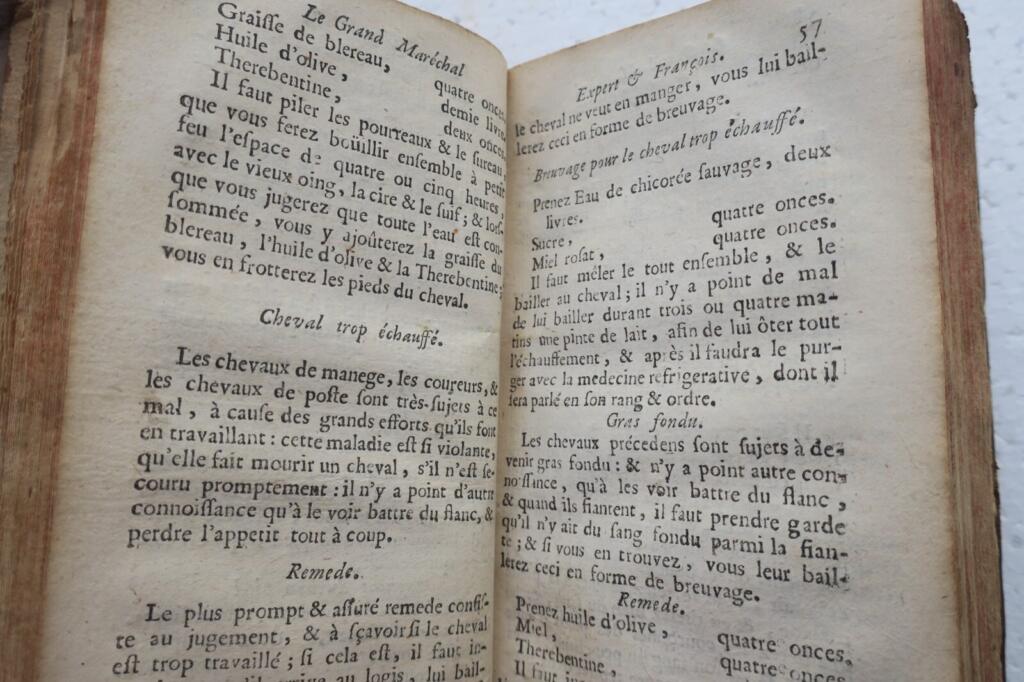 Le Grand Maréchal
Graiſſe de blereau, quatre onces,
Huile d'olive, demie livre,
Therebentine, deux onces.
Il faut piler les pourreaux & le ſureau,
que vous ferez boüillir enſemble à petit
feu l'eſpace de quatre ou cinq heures,
avec le vieux oing, la cire & le ſuif; & lorſ-
que vous jugerez que toute l'eau eſt con-
ſommée, vous y ajoûterez la graiſſe du
blereau, l'huile d'olive & la Therebentine;
vous en frotterez les pieds du cheval.
Cheval trop échauffé.
Les chevaux de manege, les coureurs, &
les chevaux de poſte ſont très-ſujets à ce
mal, à cauſe des grands efforts qu'ils font
en travaillant: cette maladie eſt ſi violante,
qu'elle fait mourir un cheval, s'il n'eſt ſe-
couru promptement: il n'y a point d'autre
connoiſſance qu'à le voir battre du flanc, &
perdre l'appetit tout à coup.
Remede.
Le plus prompt & aſſuré remede conſiſ-
te au jugement, & à ſçavoir ſi le cheval
eſt trop travaillé; ſi cela eſt, il faut in-
au logis, lui bail-
Expert & François. 57
le cheval ne veut en manger, vous lui bail-
lerez ceci en forme de breuvage.
Breuvage pour le cheval trop échauffé.
Prenez Eau de chicorée ſauvage, deux
livres.
Sucre, quatre onces.
Miel roſat, quatre onces.
Il faut mêler le tout enſemble, & le
bailler au cheval; il n'y a point de mal
de lui bailler durant trois ou quatre ma-
tins une pinte de lait, afin de lui ôter tout
l'échauffement, & après il faudra le pur-
ger avec la medecine refrigerative, dont il
ſera parlé en ſon rang & ordre.
Gras fondu.
Les chevaux précedens ſont ſujets à de-
venir gras fondu: & n'y a point autre con-
noiſſance, qu'à les voir battre du flanc,
& quand ils fiantent, il faut prendre garde
qu'il n'y ait du ſang fondu parmi la fian-
te; & ſi vous en trouvez, vous leur bail-
lerez ceci en forme de breuvage.
Remede.
Prenez huile d'olive, quatre onces.
Miel, quatre onces
Therebentine,
Il faut